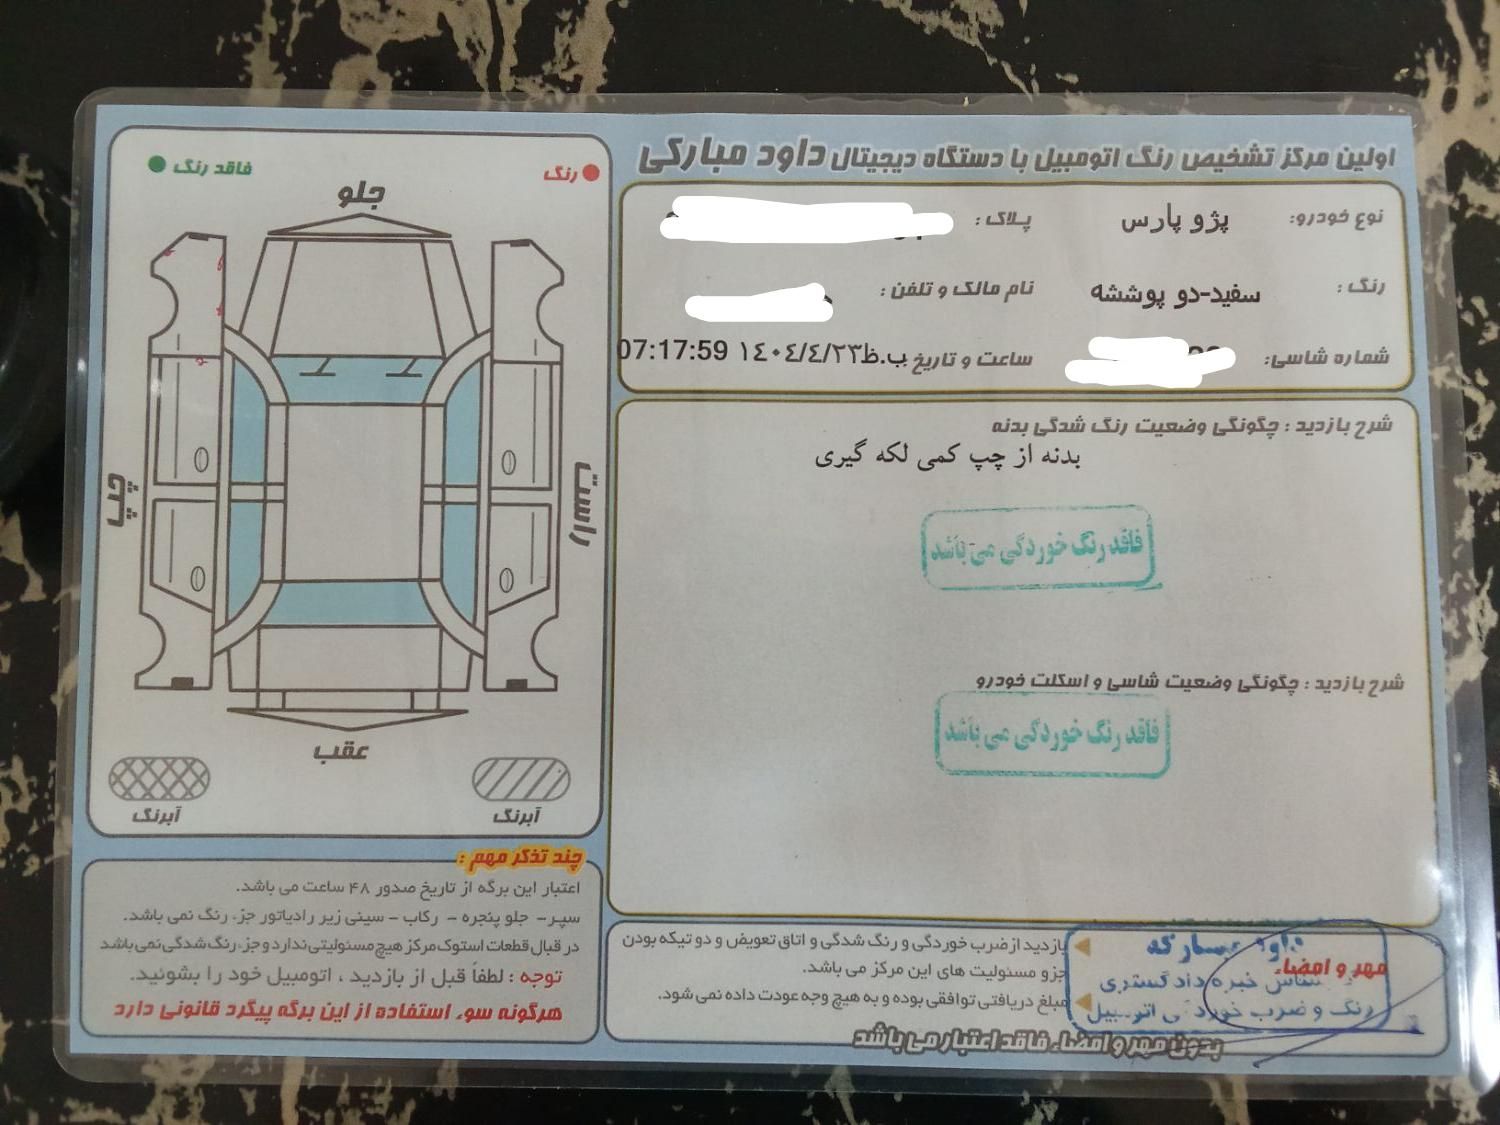 اولین مرکز تشخیص رنگ اتومبیل با دستگاه دیجیتال داود مبارکی
نوع خودرو: پژو پارس
پلاک :
رنگ : سفید-دو پوششه
نام مالک و تلفن :
شماره شاسی:
ساعت و تاریخ ۱٤۰٤/٤/۲۳ب.ظ 07:17:59
شرح بازدید : چگونگی وضعیت رنگ شدگی بدنه
بدنه از چپ کمی لکه گیری
فاقد رنگ خوردگی می باشد
شرح بازدید : چگونگی وضعیت شاسی و اسکلت خودرو
فاقد رنگ خوردگی می باشد
رنگ
فاقد رنگ
جلو
راست
چپ
عقب
آبرنگ
آبرنگ
چند تذکر مهم :
اعتبار این برگه از تاریخ صدور ۴۸ ساعت می باشد.
سپر- جلو پنجره - رکاب - سینی زیر رادیاتور جزء رنگ نمی باشد.
در قبال قطعات استوک مرکز هیچ مسئولیتی ندارد و جزء رنگ شدگی نمی باشد
توجه : لطفاً قبل از بازدید ، اتومبیل خود را بشوئید.
هرگونه سوء استفاده از این برگه پیگرد قانونی دارد
بازدید از ضرب خوردگی و رنگ شدگی و اتاق تعویض و دو تیکه بودن
جزو مسئولیت های این مرکز می باشد.
مبلغ دریافتی توافقی بوده و به هیچ وجه عودت داده نمی شود.
مهر و امضاء
خبره دادگستری
رنگ و ضرب خوردگی اتومبیل
بدون مهر و امضاء فاقد اعتبار می باشد